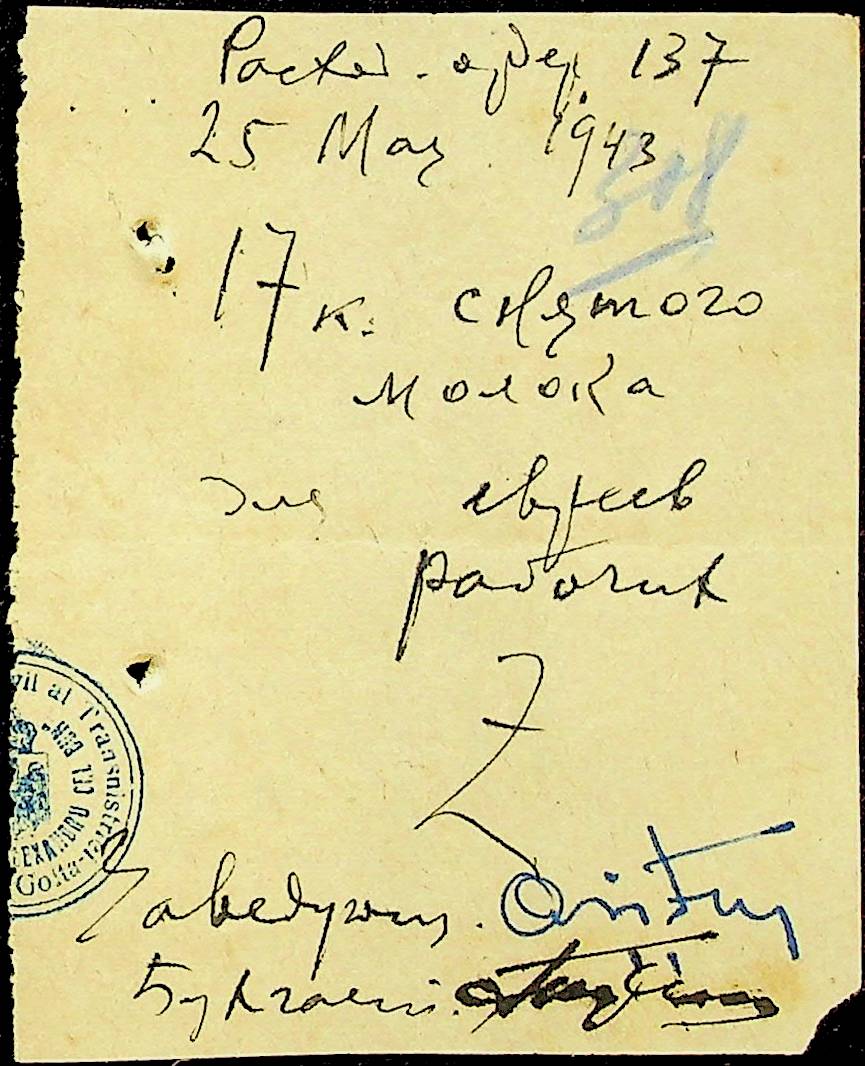 Расход. ордер 137
25 Мая 1943
318
17 к. снятого
молока
для евреев
рабочих
Заведующ.
Бухгалтер.
vil al Transnistriei
EXANDRU CEL BUN
Golta